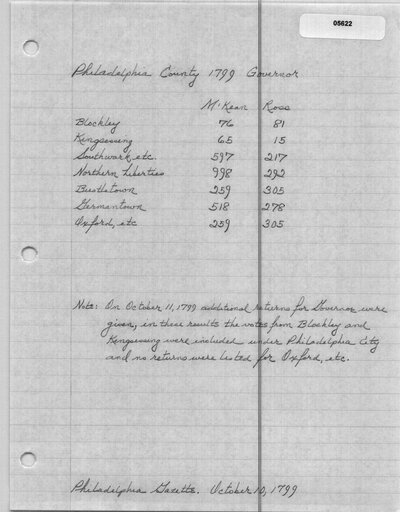 05622
Philadelphia County 1799 Governor
McKean Ross
Blockley 76 81
Kingsessing 65 15
Southwark, etc. 597 217
Northern Liberties 998 292
Bustletown 259 305
Germantown 518 278
Oxford, etc 259 305
Note: On October 11, 1799 additional returns for Governor were
given, in these results the votes from Blockley and
Kingsessing were included under Philadelphia City
and no returns were listed for Oxford, etc.
Philadelphia Gazette. October 10, 1799